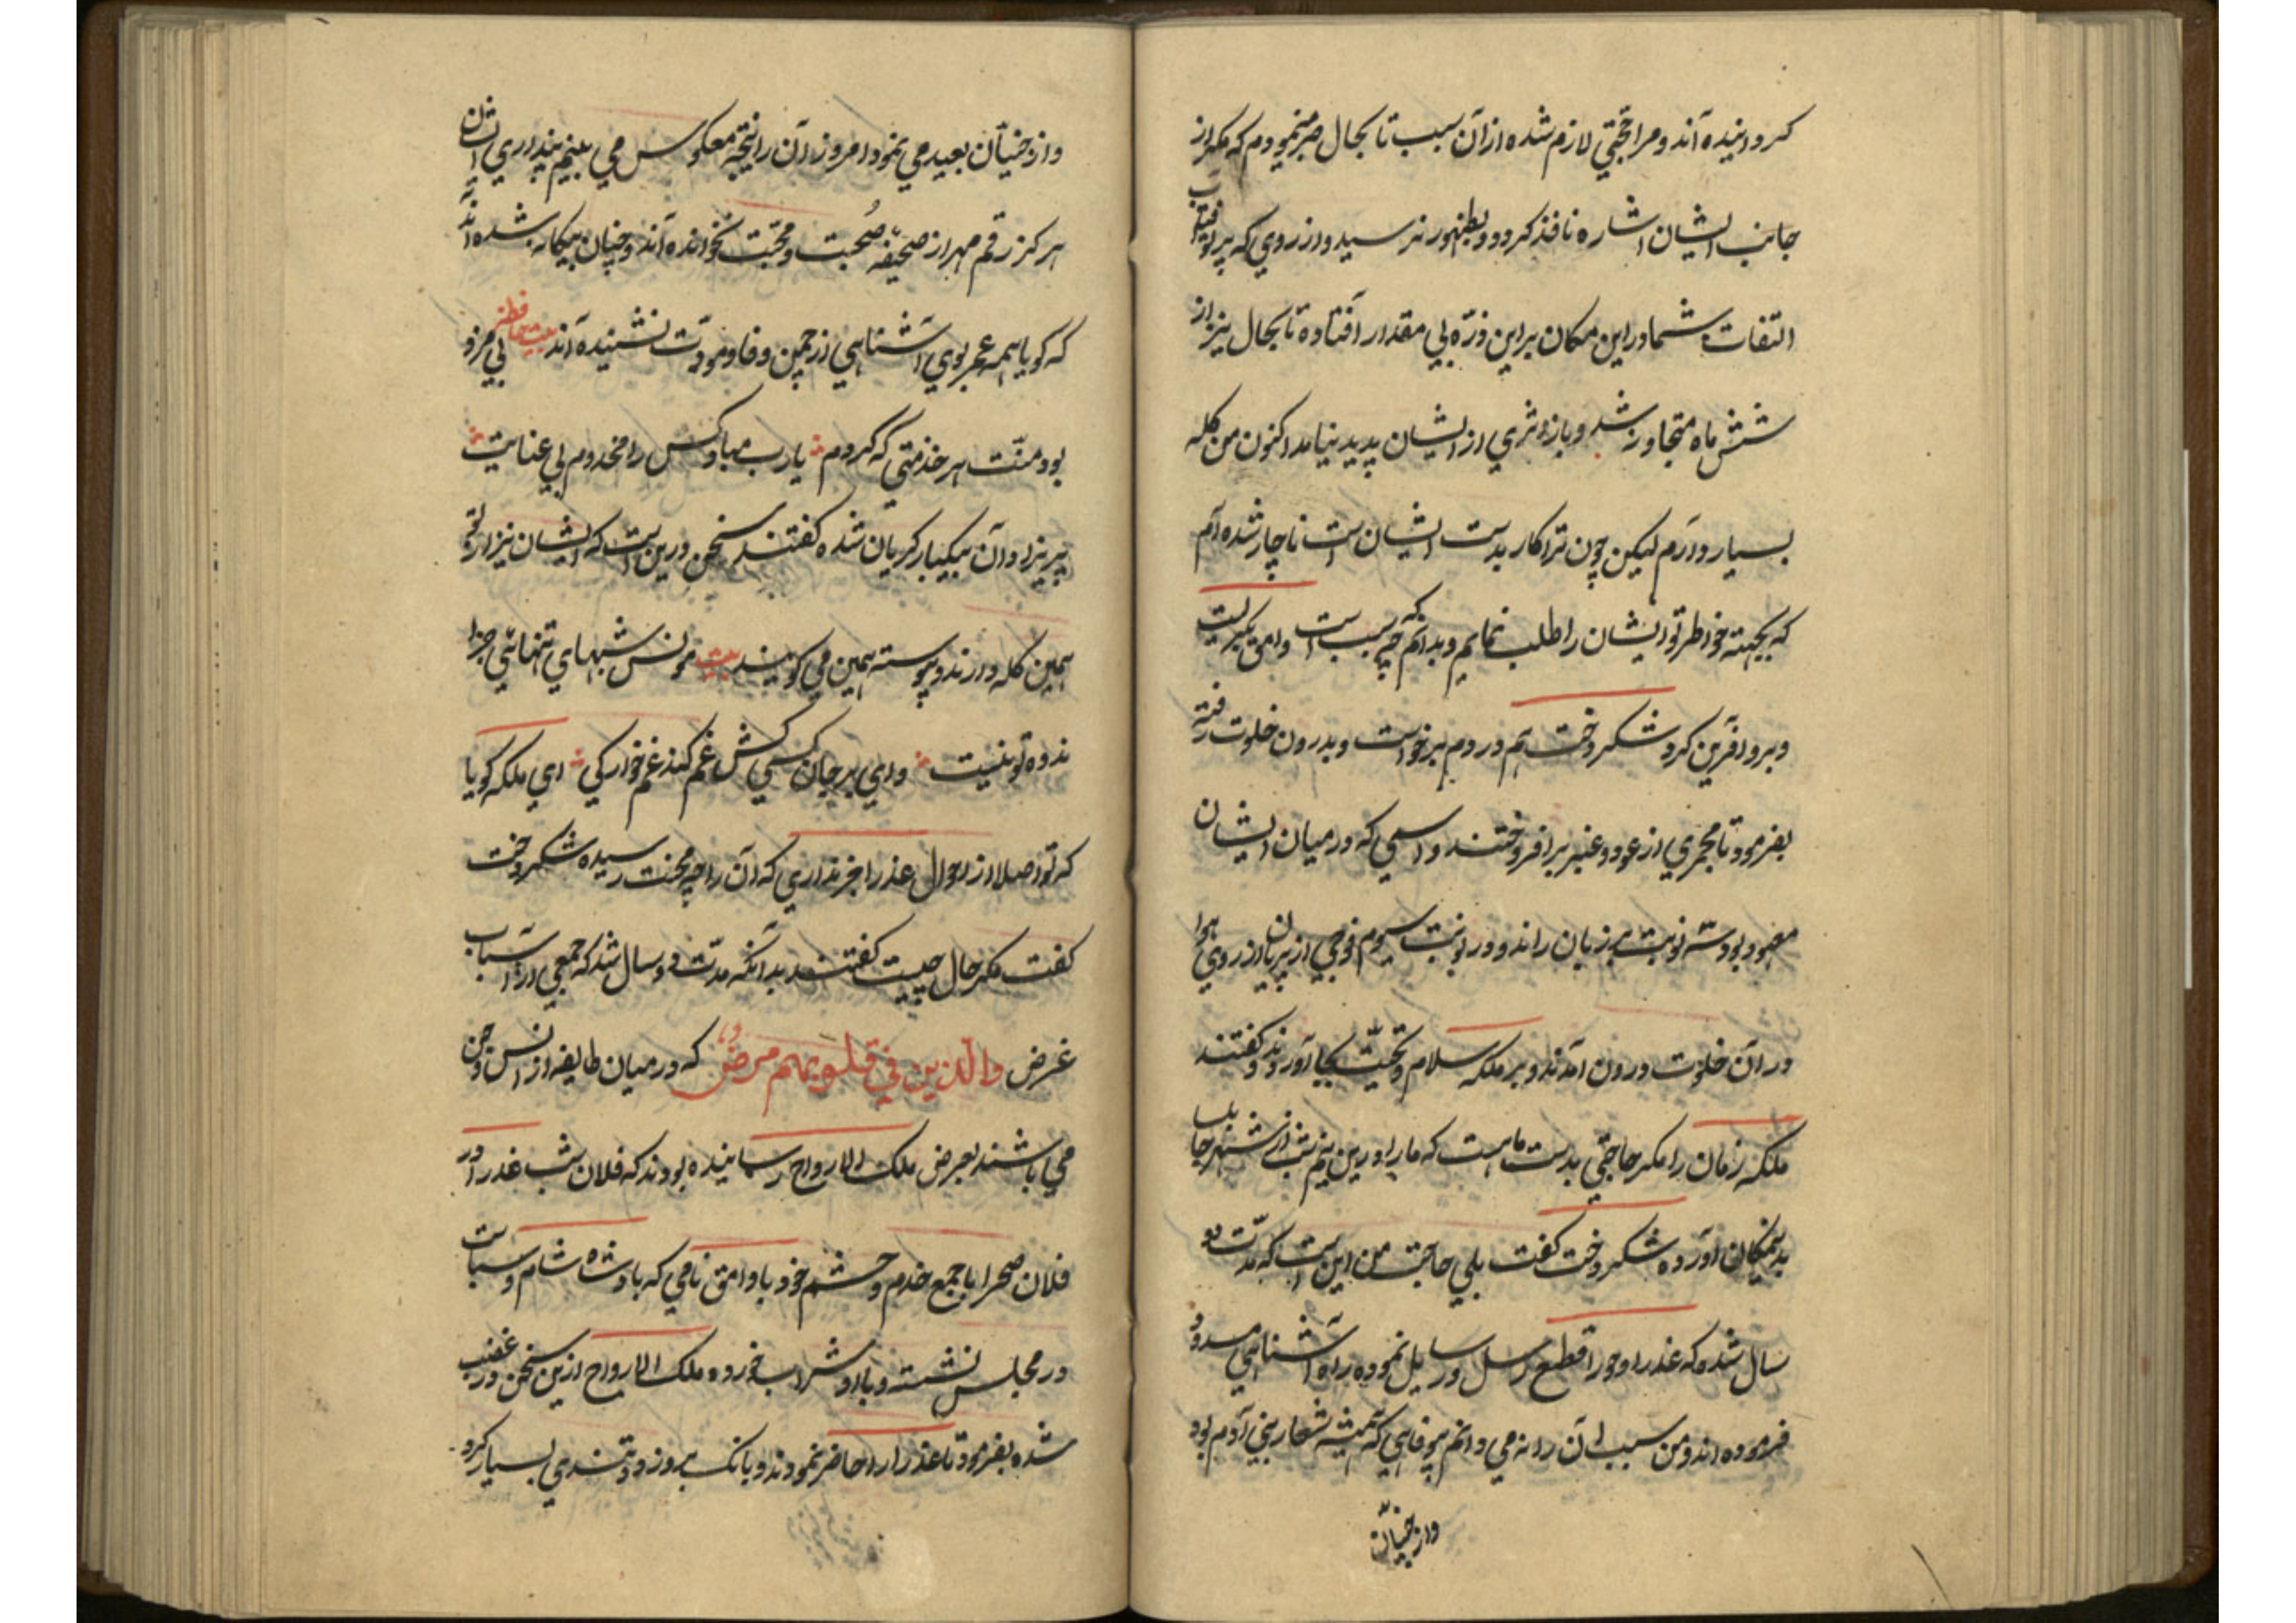 کردانیده اند و مرا حجتی لازم شده از آن سبب تا بحال صبر مینمودم که مکر از
جانب ایشان اشاره نافذ کردد و بظهور نرسید و از روی که پرتو آفتاب
التفات شما درین مکان بر این ذره بی مقدار افتاده تا بحال نیز از
شش ماه متجاوز شد و باز اثری از ایشان پدید نیامد اکنون من کله
بسیار دارم لیکن چون ترا کار بدست ایشان است ناچار شده ام
که بجهته خواطر تو ایشان را طلب نمایم و بدانم که چه سبب است وامق بکریست
و برو آفرین کرد شکر دخت هم در دم برخواست و بدرون خلوت رفته
بفرمود تا مجمری از عود و عنبر برافروختند و اسمی که در میان ایشان
معهود بود سه نوبت بر زبان راند و در نوبت سیوم فوجی از پریان از روی هوا
در آن خلوت درون آمدند و بر ملکه سلام و تحیت بجا آوردند و کفتند
ملکه زمان را مکر حاجتی بدست ماست که ما را درین نیم شب از شهر جابل
بدینمکان آورده شکر دخت کفت بلی حاجت من این است که مدت دو
سال شده که عذرا و حورا قطع رسل و رسایل نموده راه آشنایی مسدود
فرموده اند و من سبب آن را نه می دانم بیوفایی که همیشه شعار بنی آدم بود
و از جنیان
و از جنیان بعید می نمود امروز آن را نتیجه معکوس می بینم پنداری ایشان
هرکز رقم مهر از صحیفه صحبت و محبت نخوانده اند و چنان بیکانه شده اند
که کویا همه عمر بوی آشنایی از چمن وفا و مودت نشنیده اند بیت حافظ بی مزد
بود منت هر خدمتی که کردم یارب مباد کس را مخدوم بی عنایت
پریزادان بیکبار کریان شده کفتند سخن درین است که ایشان نیز از تو
همین کله دارند و پیوسته همین می کویند بیت مونس شبهای تنهائی جز
ندوه تو نیست وای بر جان کسی کش غم کند غم خوارکی ای ملکه کویا
که تو اصلا از احوال عذرا خبر نداری که آن را چه محنت رسیده شکر دخت
کفت مکر حال چیست کفتند بدانکه مدت دو سال شد که جمعی از اسباب
غرض والذین فی قلوبهم مرض که در میان طایفه از انس و جن
می باشند بعرض ملک الارواح رسانیده بودند که فلان شب عذرا در
فلان صحرا با جمع خدم و حشم خود با وامق نامی که پادشاه شام و سباست
در مجلس نشسته و با او شراب خورده ملک الارواح ازین سخن در غضب
شده بفرمود تا عذرا را حاضر نمودند و بانک بروزد و تندی بسیار کرد